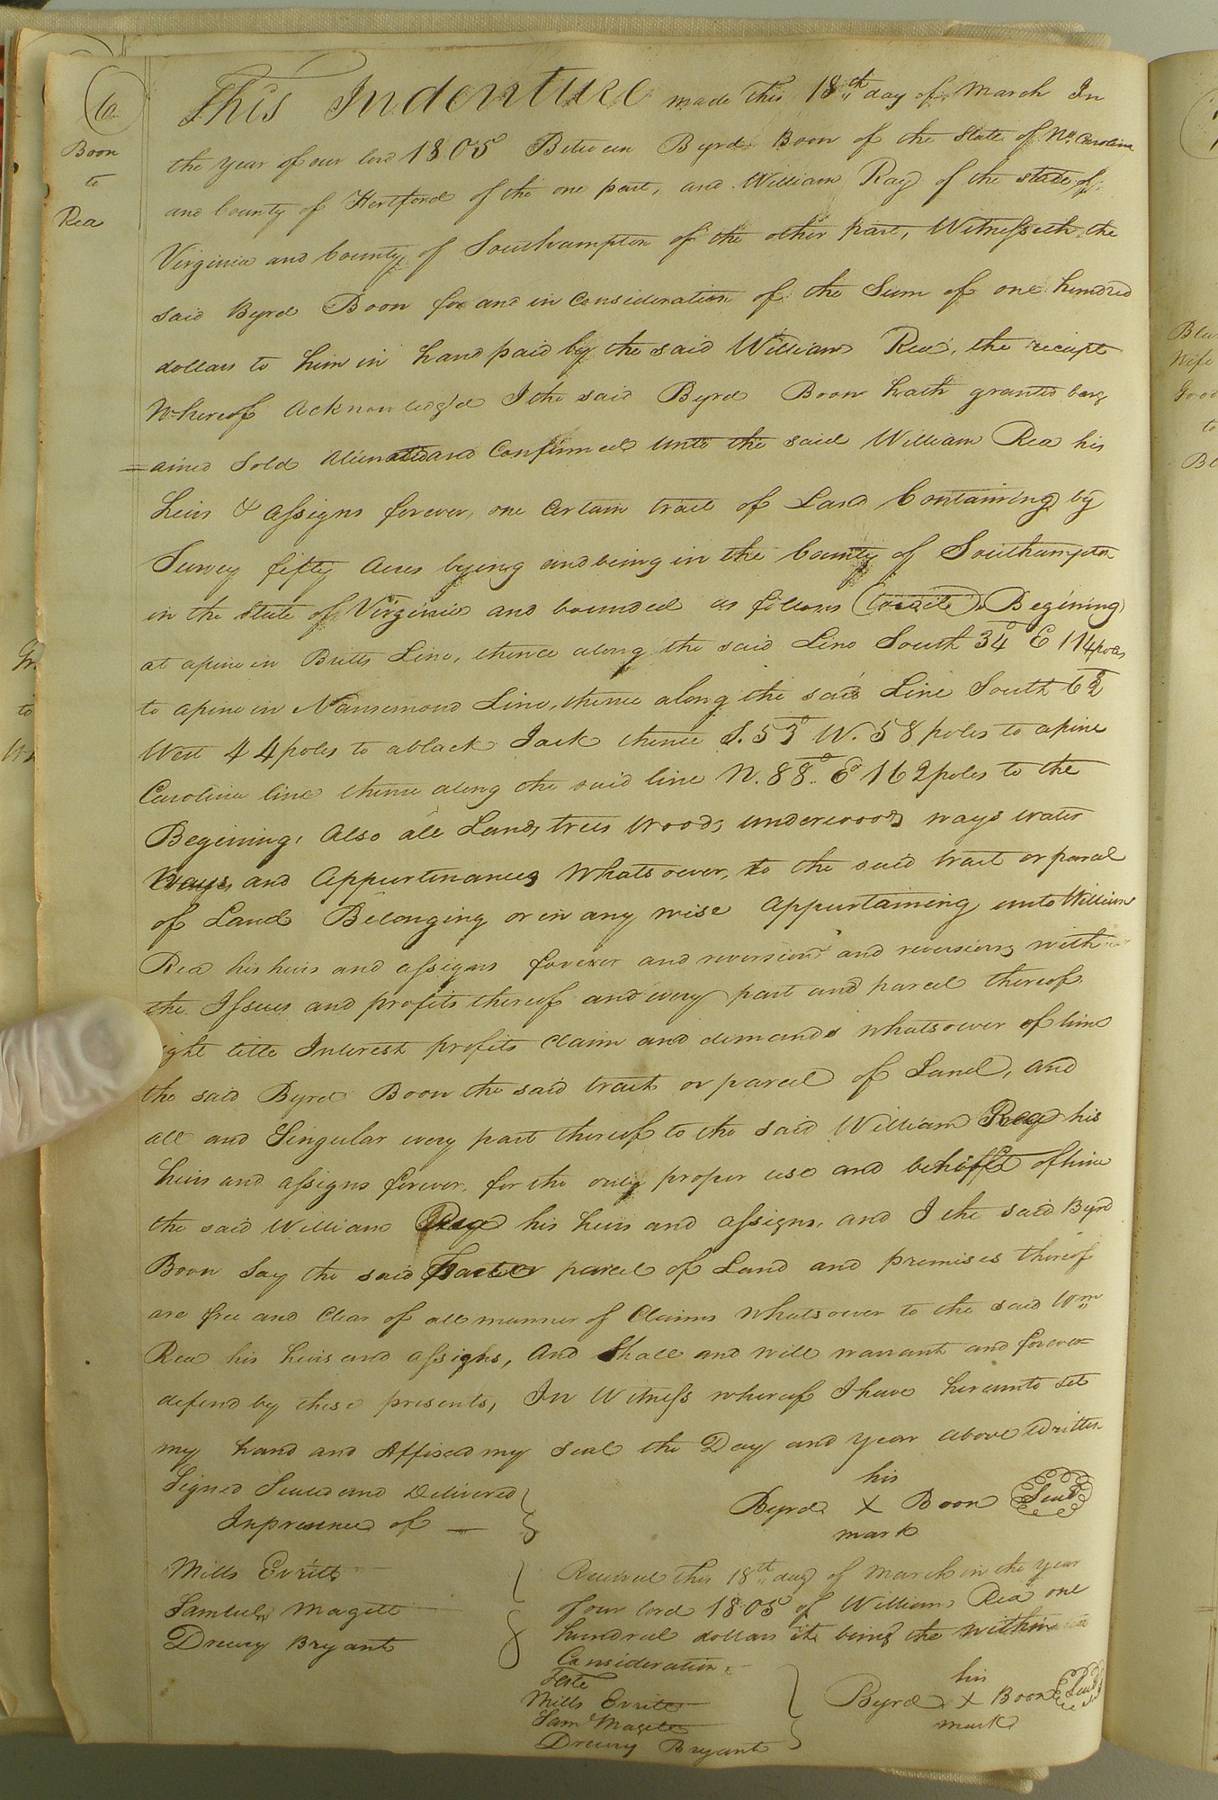 6
Boon
to
Rea
This Indenture made this 18th day of March In
the year of our lord 1805 Between Byrd Boon of the State of No. Carolina
and County of Hertford of the one part, and William Ray of the state of
Virginia and County of Southampton of the other part, Witnesseth, the
said Byrd Boon for and in Consideration of the Sum of one hundred
dollars to him in hand paid by the said William Rea, the receipt
Whereof Acknowledg'd I the said Byrd Boon hath granted barg
=ained Sold Alienated and Confirmed unto the said William Rea his
heirs & assigns forever, one Certain tract of Land Containing by
Survey fifty Acres lying and being in the County of Southampton
in the State of Virginia and bounded as follows Begining
at a pine in Britts Line, thence along the said Line South 34° E 114 poles
to a pine in Nansemond Line, thence along the said Line South 62°
West 44 poles to a black Jack thence S. 53° W. 58 poles to a pine
Carolina line thence along the said line N. 88° E° 162 poles to the
Begining, Also all Land, trees Woods underwoods ways water
Ways, and Appurtenances Whatsoever, to the said tract or parcel
of Land Belonging or in any wise Appurtaining unto William
Rea his heirs and assigns forever and reversion and reversions with
the Issues and profits thereof and every part and parcel thereof
ight title Interest profits Claim and demands whatsoever of him
the said Byrd Boon the said tract or parcel of Land, and
all and Singular every part thereof to the said William Rea his
heirs and assigns forever, for the only proper use and behoffe of him
the said William Rea his heirs and assigns, and I the said Byrd
Boon Say the said Tract or parcel of Land and premises thereof
are free and Clear of all manner of Claims whatsoever to the said Wm
Rea his heirs and assigns, And Shall and will warrant and forever
defend by these presents, In Witness whereof I have hereunto set
my hand and Affixed my seal the Day and year above Written
Signed Sealed and Delivered
In presence of
his
Byrd X Boon Seal
mark
Mills Evritt
Samuel Magett
Drewry Bryant
Received this 18th day of March in the year
of our lord 1805 of William Rea one
hundred dollars it being the within
Consideration
Teste
Mills Evritt
Sam Magett
Drewry Bryant
his
Byrd X Boon Seal
mark
Wife
Good
to